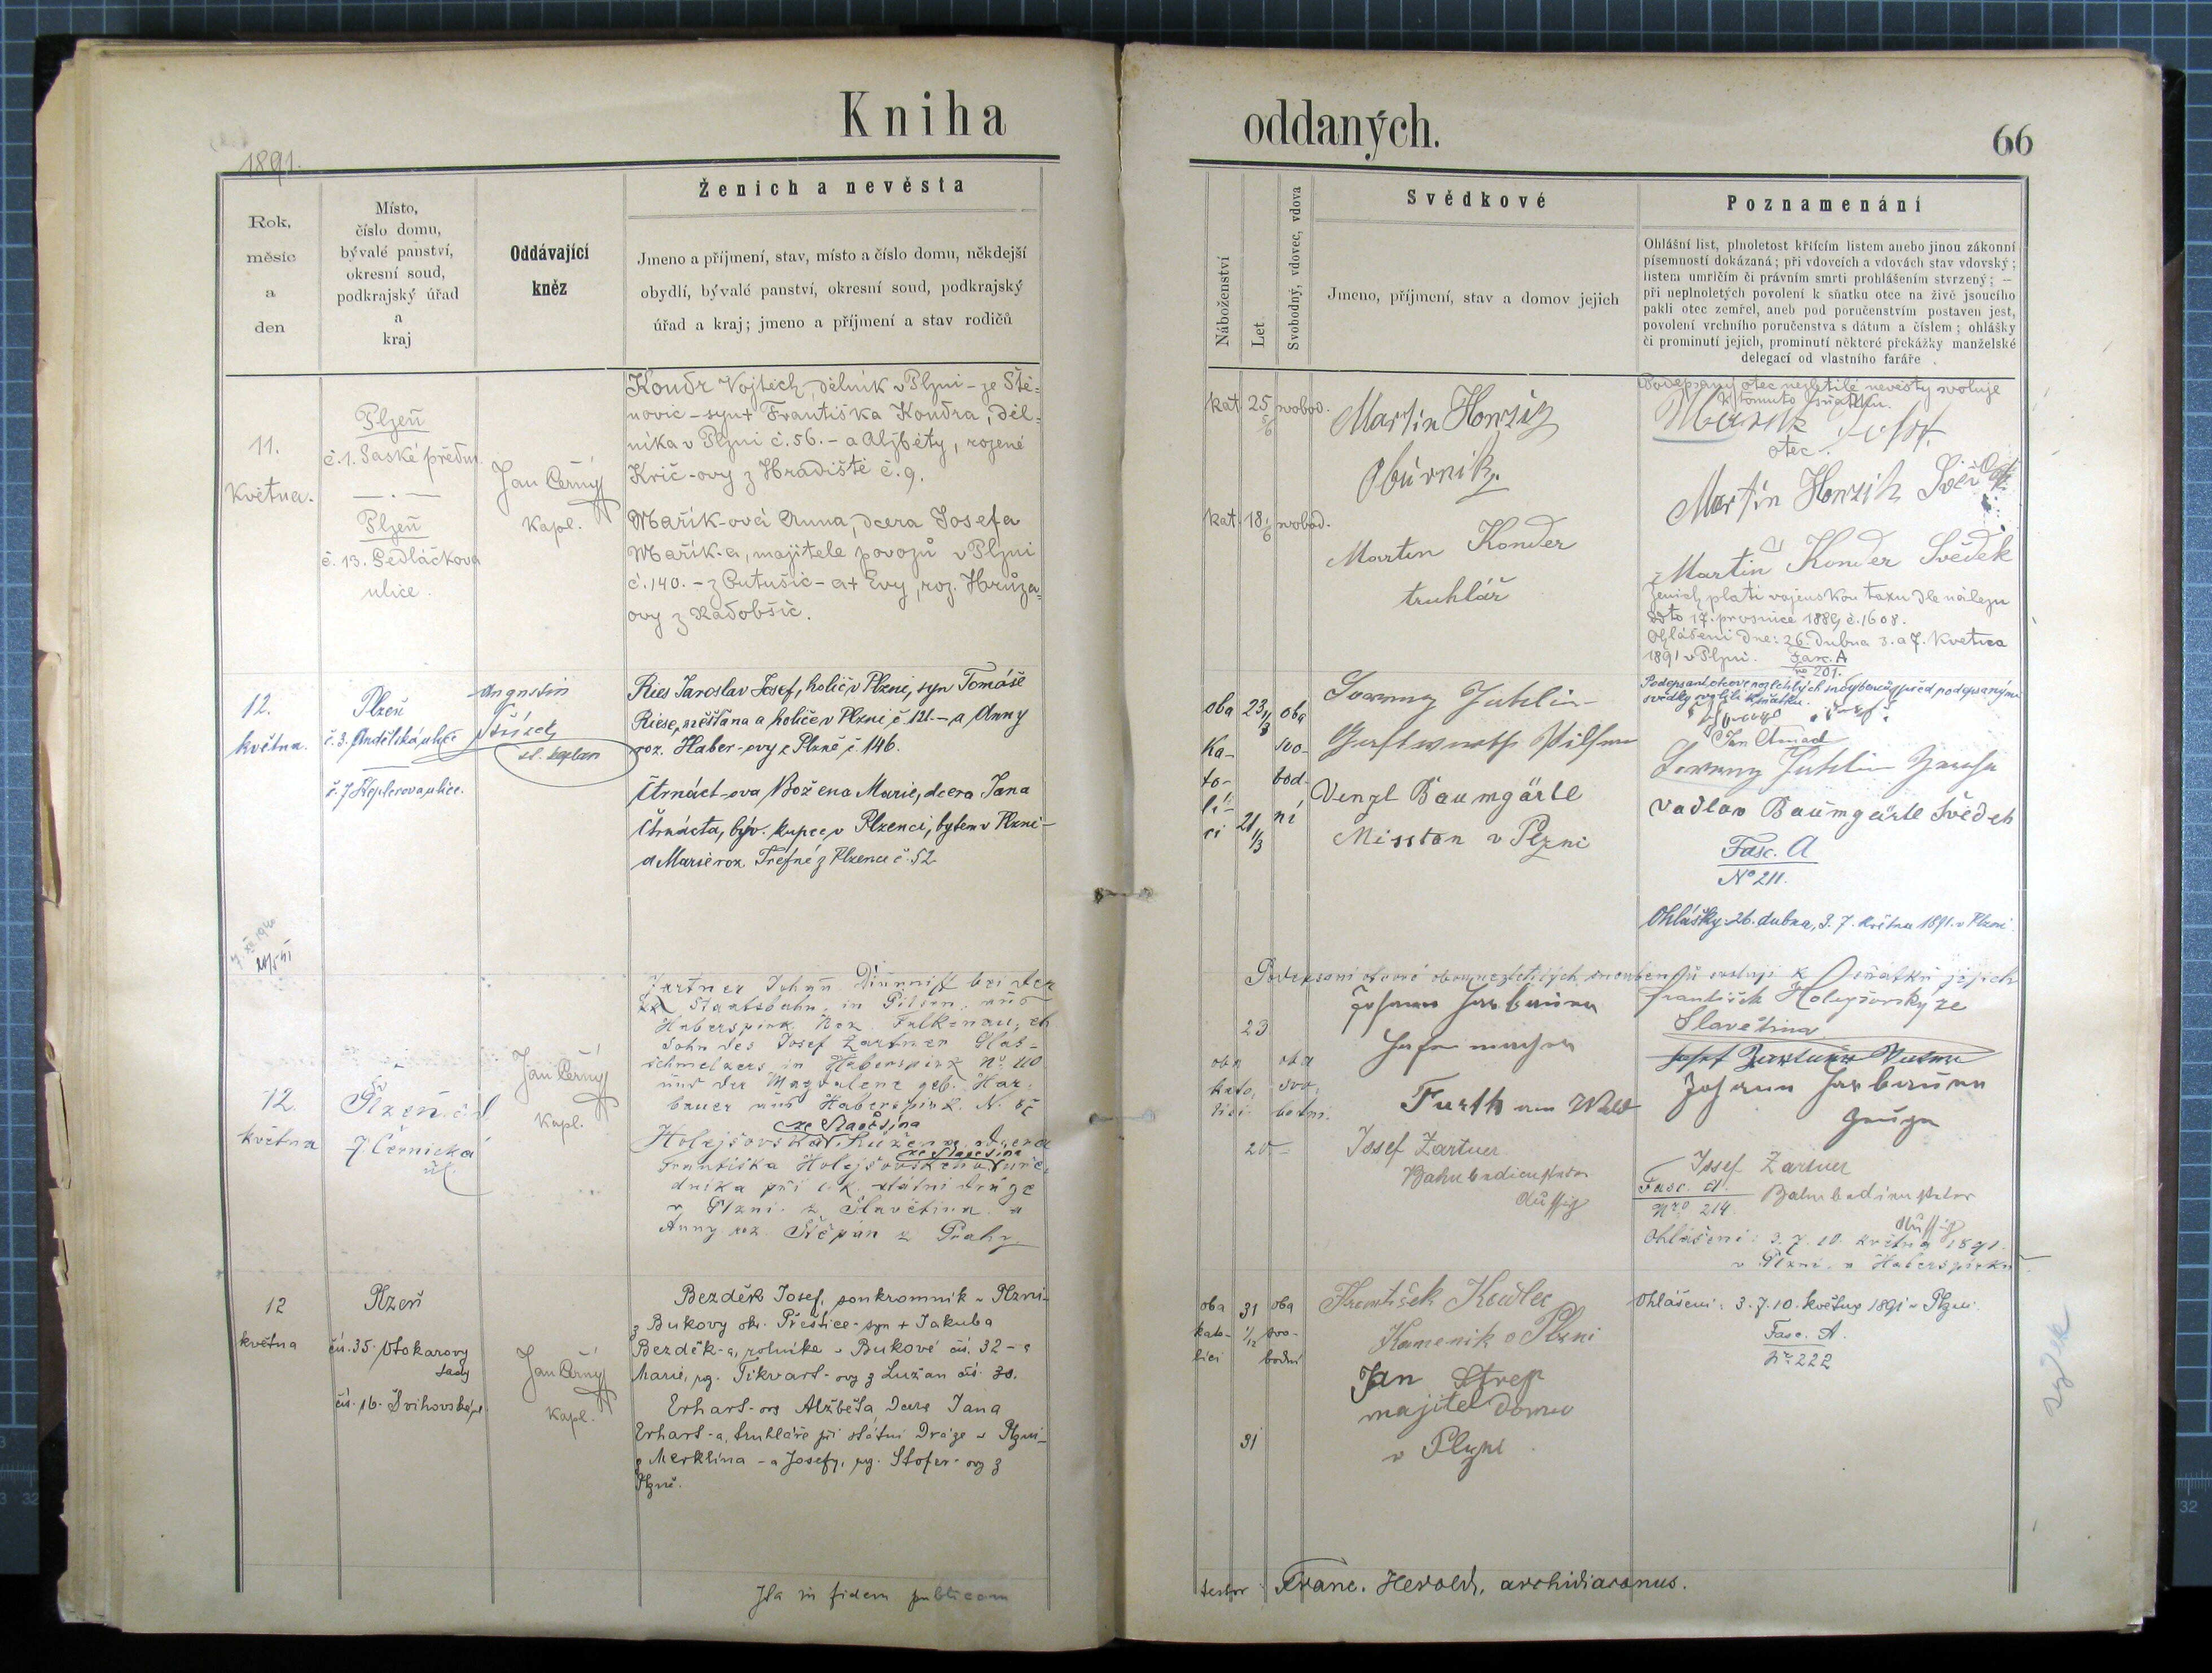 Kniha
oddaných.
66
1891.
Rok,
měsíc
a
den
Místo,
číslo domu,
bývalé panství,
okresní soud,
podkrajský úřad
a
kraj
Oddávající
kněz
Ženich a nevěsta
Jmeno a příjmení, stav, místo a číslo domu, někdejší
obydlí, bývalé panství, okresní soud, podkrajský
úřad a kraj; jmeno a příjmení a stav rodičů
Náboženství
Let
Svobodný, vdovec, vdova
Svědkové
Jmeno, příjmení, stav a domov jejich
Poznamenání
Ohlášní list, plnoletost křticím listem anebo jinou zákonní
písemností dokázaná; při vdovcích a vdovách stav vdovský;
listem umrlčím či právním smrti prohlášením stvrzený; —
při neplnoletých povolení k sňatku otce na živě jsoucího
pakli otec zemřel, aneb pod poručenstvím postaven jest,
povolení vrchního poručenstva s dátum a číslem; ohlášky
či prominutí jejich, prominutí některé překážky manželské
delegací od vlastního faráře
11.
května.
Plzeň
č. 1. Saské předm.
Plzeň
č. 13. Sedláčkova
ulice.
Jan Černý
Kapl.
Koudr Vojtěch, dělník v Plzni - ze Stě-
novic - syn + Františka Koudra, děl-
níka v Plzni č. 56. - a Alžběty, rozené
Krič-ovy z Hradiště č. 9.
Mařík-ová Anna, dcera Josefa
Mařík-a, majitele povozů v Plzni
č. 140. - z Lutušic - a + Evy, roz. Hrůza-
ovy z Radobčic.
kat. 25 5/6 svobod.
kat. 18 1/6 svobod.
Martin Honzig
Obúvnik.
Martin Konder
truhlář
Podepsaný otec nezletilé nevěsty svoluje
k tomuto sňatku.
Mařik Josef
otec.
Martin Honzik
Martin Konder Svědek
Ženich platí vojenskou taxu dle nálezu
ddto 17. prosince 1889 č. 1608.
Ohlášení dne: 26. dubna 3. a 7. května
1891 v Plzni. Fasc. A
No 201.
12.
května.
Plzeň
č. 3. Andělská ulice
č. 7 Keplerova ulice.
Augustin
st. kaplan
Ries Jaroslav Josef, holič v Plzni, syn Tomáše
Riese, měšťana a holiče v Plzni č 121. - a Anny
roz. Haber-ovy z Plzně č. 146.
Čtrnáct-ova Božena Marie, dcera Jana
Čtrnácta, býv. kupce v Plzenci, bytem v Plzni -
a Marie roz. Tréfné z Plzence č. 52
oba 23 1/3 oba
ka- svo-
to- bod-
lí- ní
ci 21 1/3
Venzl Baumgärtl
Misstan v Plzni
svědky svolili k sňatku.
Vaclav Baumgärtl Svědek
Fasc. A
No 211.
Ohlášky: 26. dubna, 3. 7. května 1891. v Plzni.
12.
května
Plzeň č. 1
7. Černická
ul.
Jan Černý
Kapl.
Zartner Johann bei der
kk Staatsbahn in Pilsen, aus
Haberspirk Bez. Falkenau, eh
Sohn des Josef Zartner Glas-
schmelzers in Haberspirk No. 110
und der Magdalene geb. Har-
bauer aus Haberspirk N.
ze Slavětína
Holejšovská Růžena, dcera
ze Slavětína
Františka Holejšovského uře-
dníka při c. k. státní dráze
v Plzni z Slavětína a
Anny roz. Štěpán z Prahy
23
oba oba
kato- svo-
líci bodni.
20
Johann Harbauer
Furth am Wald
Josef Zartner
Bahnbediensteter
Aussig
Podepsaní otcové obou nezletilých snoubenců svolují k sňatku jejich
František Holejšovský ze
Slavětína
Johann Harbauer
Zeuge
Josef Zartner
Bahnbediensteter
Aussig
Fasc. A.
Nro 214
Ohlášení: 3. 7. 10. května 1891.
v Plzni a Haberspirku
12
května
Plzeň
čís. 35. Otokarovy
sady
čís. 16. Švihovská ul.
Jan Černý
Kapl.
Bezděk Josef, soukromník v Plzni -
z Bukovy okr. Přeštice - syn + Jakuba
Bezděk-a, rolníka v Bukové čís. 32 - a
Marie, roz. Tikvart-ovy z Lužan čís. 30.
Erhart-ova Alžběta dcera Jana
Erhart-a, truhláře při státní dráze v Plzni -
z Merklína - a Josefy, roz. Stofer-ovy z
Plzně.
oba 31 oba
kato- 1/12 svo-
líci bodní
31
František Kowlec
Kamenik v Plzni
Jan Strep
majitel domu
v Plzni
Ohlášení: 3. 7. 10. května 1891 v Plzni.
Fasc. A.
No 222
Ita in fidem publicam
testor Franc. Herold, archidiaconus.